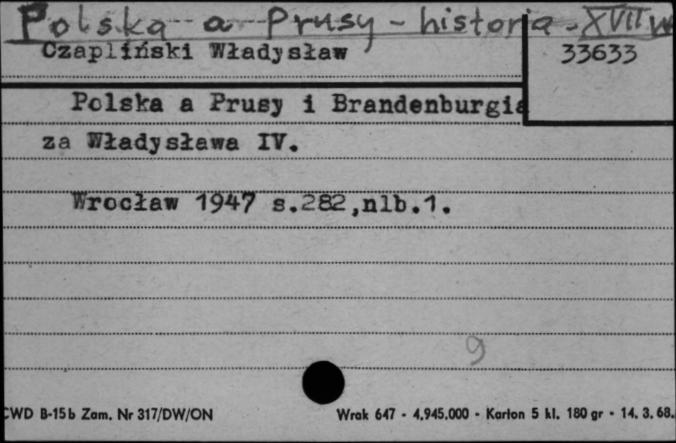 Polska - a - Prusy - historia - XVII w
Czapliński Władysław
33633
Polska a Prusy i Brandenburgia
za Władysława IV.
Wrocław 1947 s.282,nlb.1.
9
CWD B-15b Zam. Nr 317/DW/ON
Wrak 647 - 4.945.000 - Karton 5 kl. 180 gr - 14. 3. 68.